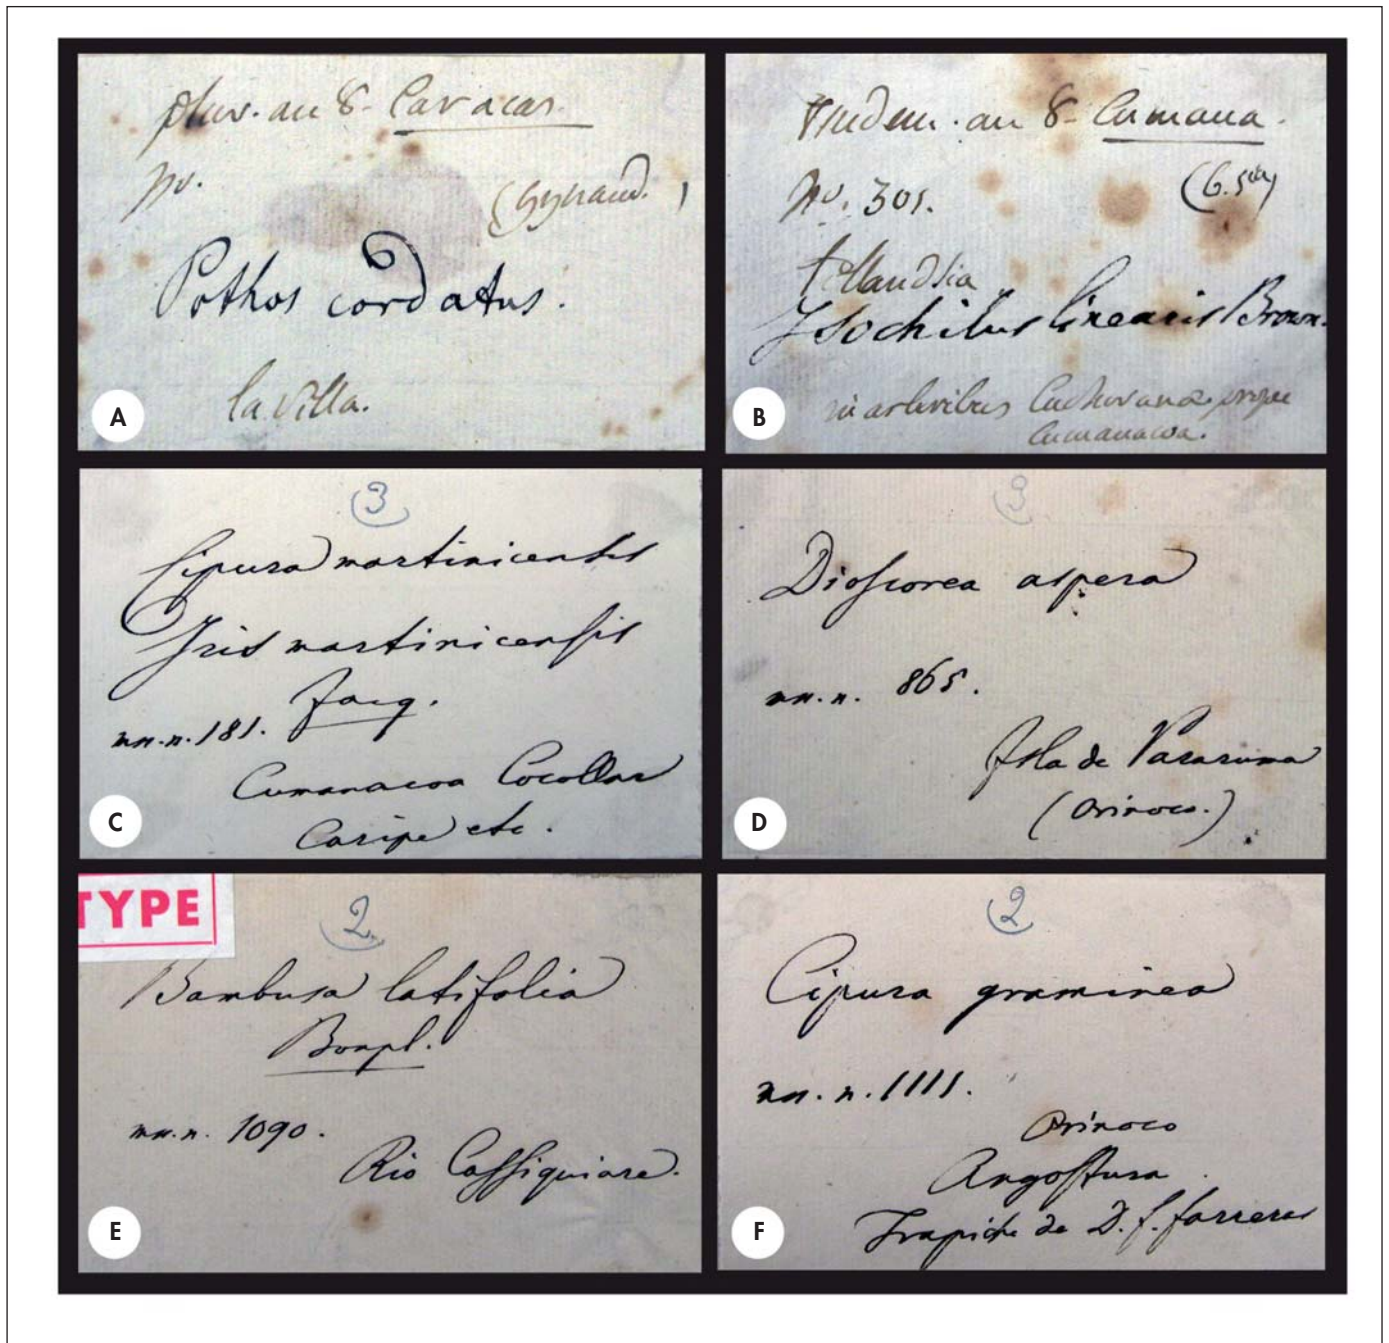 pluv. an 8- Caracas.
no.
(Gynand. )
Pothos cordatus.
la villa.
A
an 8- Cumana.
no. 301.
tillandsia
Isochilus linearis Brown.
in arboribus prope
Cumanacoa.
B
3
Cipura martinicensis
Iris martinicensis
Jacq.
mn.n. 181.
Cumanacoa Cocollar
Caripe etc.
C
3
Dioscorea aspera
mn.n. 865.
Isla de Pararuma
(Orinoco.)
D
TYPE
2
Bambusa latifolia
Bonpl.
mn.n. 1090.
Rio Cassiquiare.
E
2
Cipura graminea
mn.n. 1111.
Orinoco
Angostura
Trapiche de D. f. farreras
F